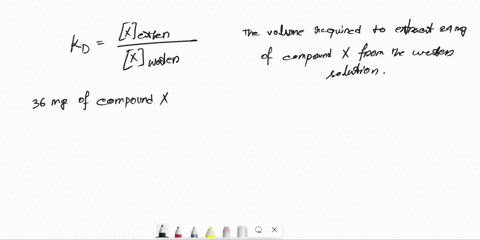 K_D = [X]ether / [X]water
The volume required to extract 24 mg
of compound X from the water
solution.
36 mg of compound X